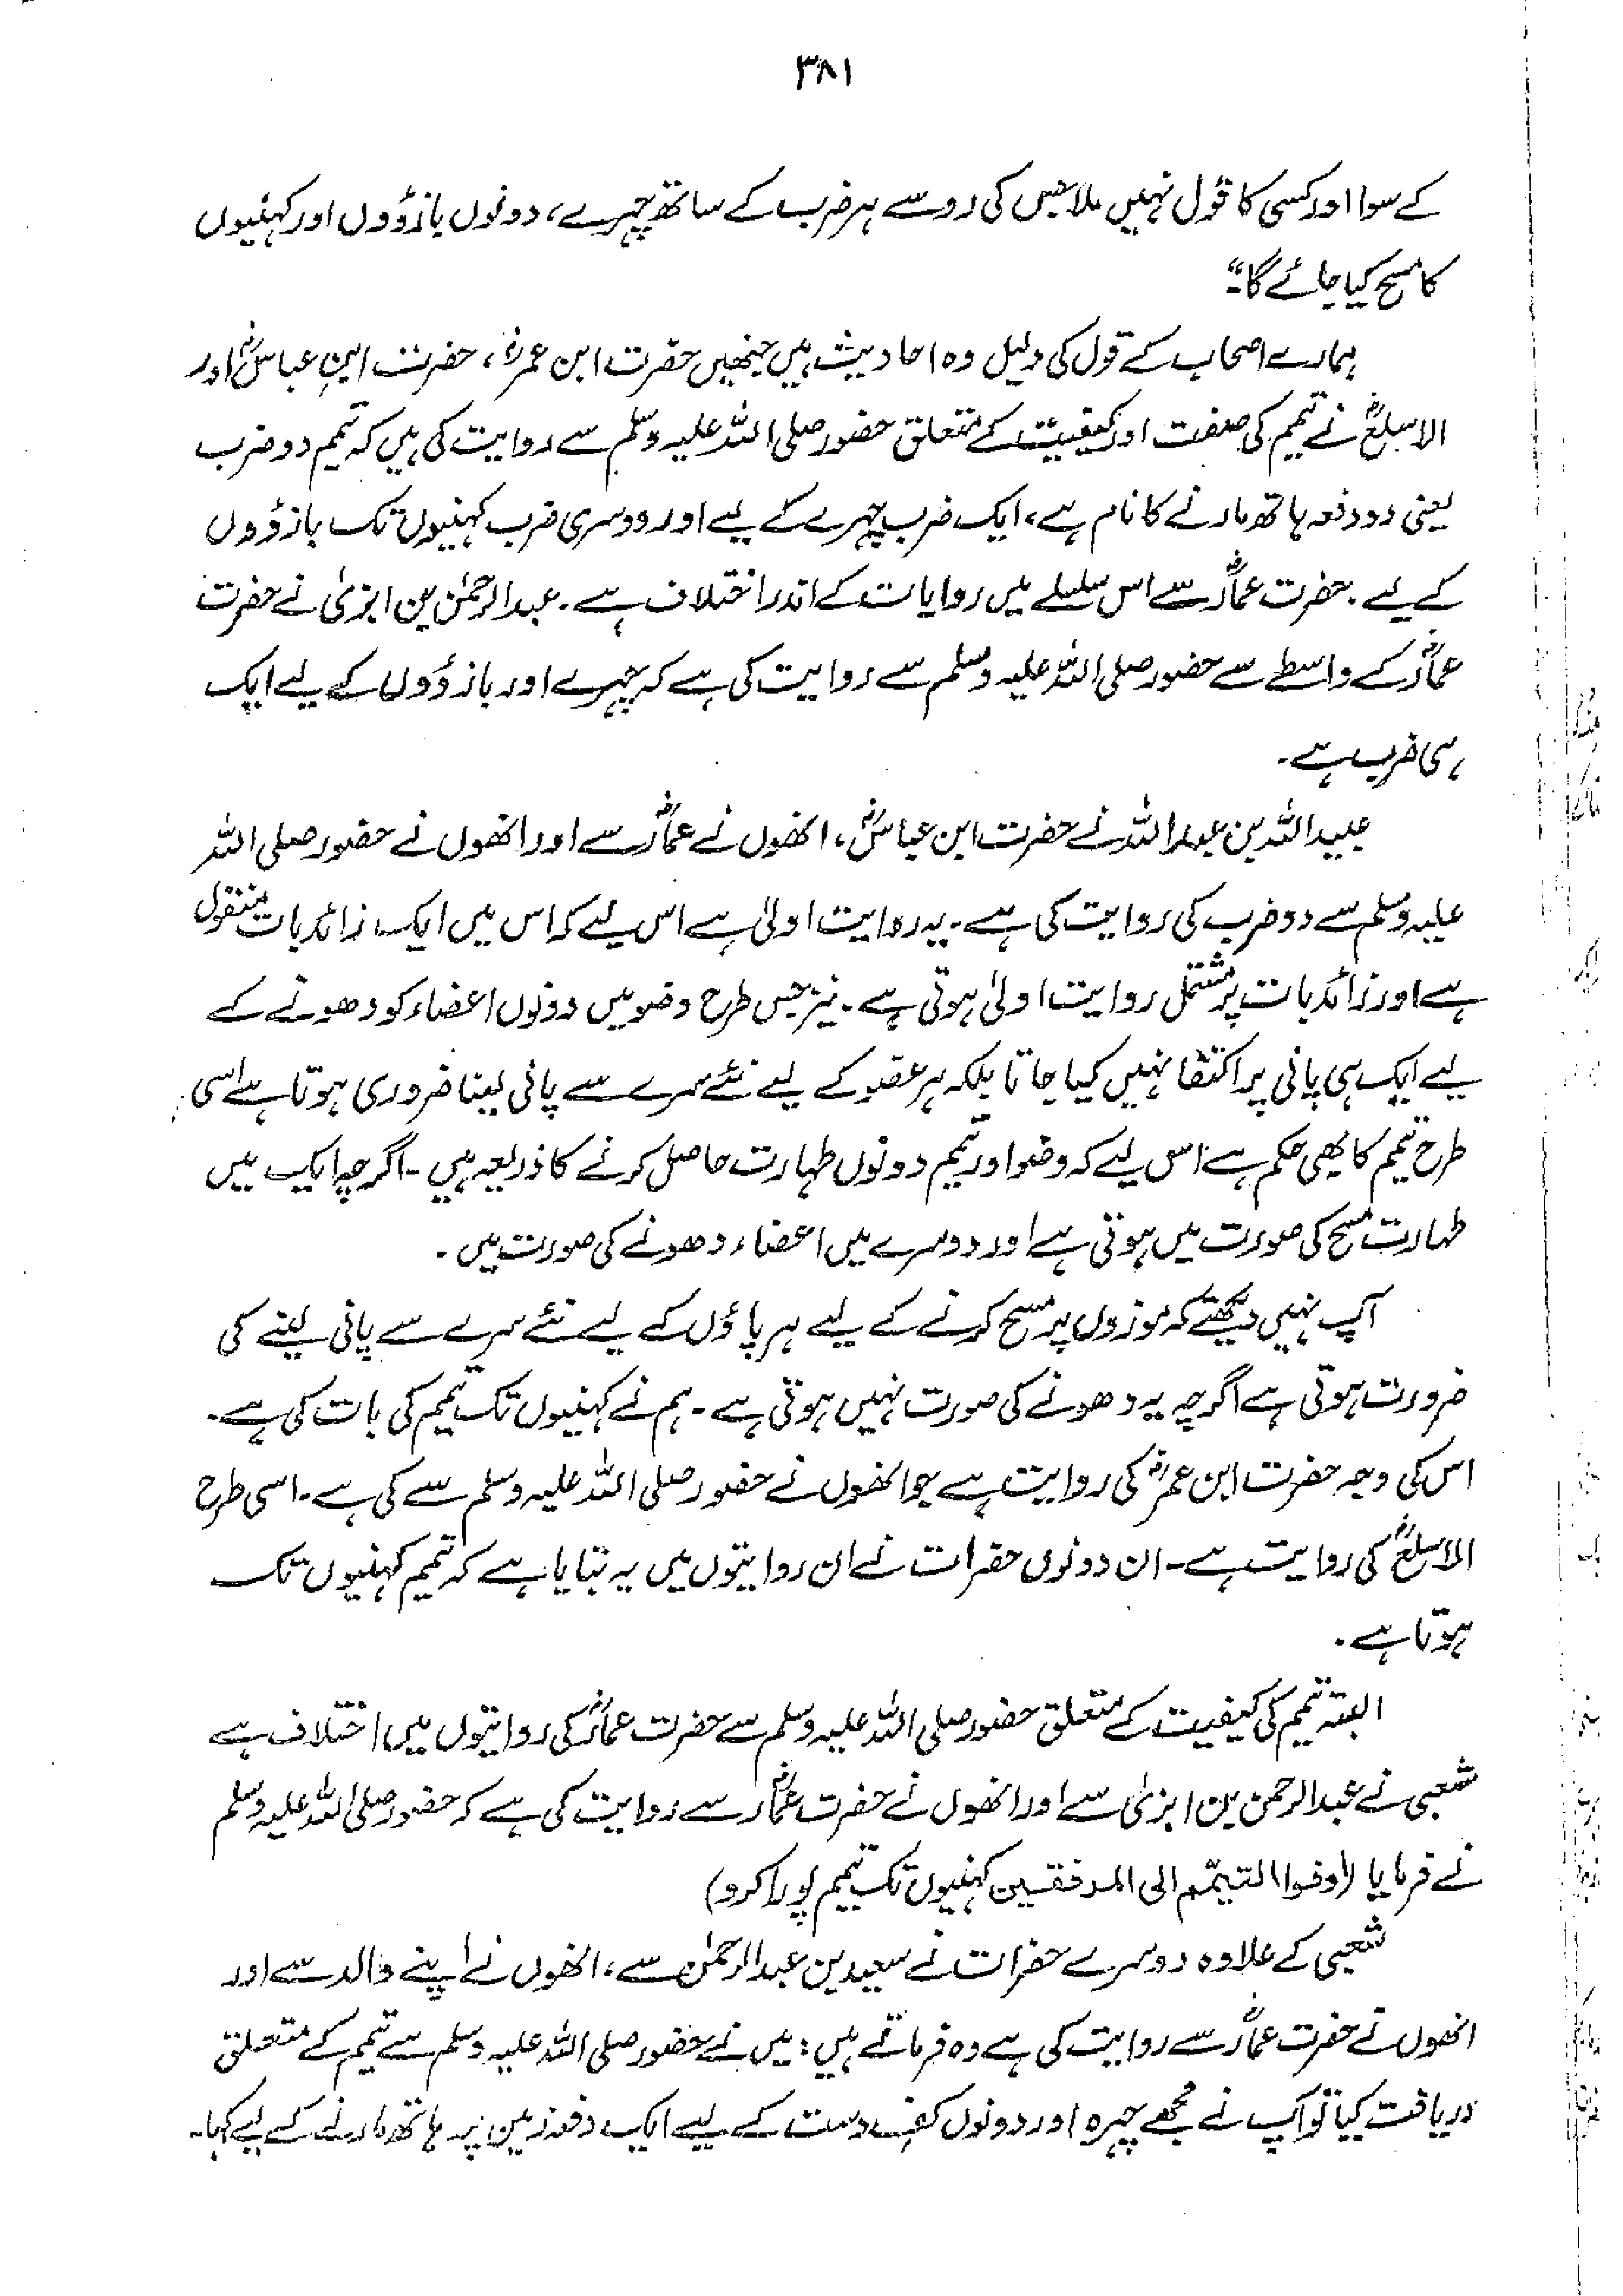 ۳۸۱
کے سوا اور کسی کا قول نہیں ملا جس کی رو سے ہر ضرب کے ساتھ چہرے، دونوں بازؤوں اور کہنیوں
کا مسح کیا جائے گا۔“
ہمارے اصحاب کے قول کی دلیل وہ احادیث ہیں جنھیں حضرت ابن عمرؓ، حضرت ابن عباسؓ اور
الاسلعؓ نے تیمم کی صفت اور کیفیت کے متعلق حضور صلی اللہ علیہ وسلم سے روایت کی ہیں کہ تیمم دو ضرب
یعنی دو دفعہ ہاتھ مارنے کا نام ہے، ایک ضرب چہرے کے لیے اور دوسری ضرب کہنیوں تک بازؤوں
کے لیے۔ حضرت عمارؓ سے اس سلسلے میں روایات کے اندر اختلاف ہے۔ عبدالرحمٰن بن ابزیٰ نے حضرت
عمارؓ کے واسطے سے حضور صلی اللہ علیہ وسلم سے روایت کی ہے کہ چہرے اور بازؤوں کے لیے ایک
ہی ضرب ہے۔
عبید اللہ بن عبداللہ نے حضرت ابن عباسؓ، انھوں نے عمارؓ سے اور انھوں نے حضور صلی اللہ
علیہ وسلم سے دو ضرب کی روایت کی ہے۔ یہ روایت اولیٰ ہے اس لیے کہ اس میں ایک زائد بات منقول
ہے اور زائد بات پر مشتمل روایت اولیٰ ہوتی ہے۔ نیز جس طرح وضو میں دونوں اعضاء کو دھونے کے
لیے ایک ہی پانی پر اکتفا نہیں کیا جاتا بلکہ ہر عضو کے لیے نئے سرے سے پانی لینا ضروری ہوتا ہے اسی
طرح تیمم کا بھی حکم ہے اس لیے کہ وضو اور تیمم دونوں طہارت حاصل کرنے کا ذریعہ ہیں۔ اگرچہ ایک میں
طہارت مسح کی صورت میں ہوتی ہے اور دوسرے میں اعضاء دھونے کی صورت میں۔
آپ نہیں دیکھتے کہ موزوں پر مسح کرنے کے لیے ہر پاؤں کے لیے نئے سرے سے پانی لینے کی
ضرورت ہوتی ہے اگرچہ یہ دھونے کی صورت نہیں ہوتی ہے۔ ہم نے کہنیوں تک تیمم کی بات کی ہے۔
اس کی وجہ حضرت ابن عمرؓ کی روایت ہے جو انھوں نے حضور صلی اللہ علیہ وسلم سے کی ہے۔ اسی طرح
الاسلعؓ کی روایت ہے۔ ان دونوں حضرات نے ان روایتوں میں یہ بتایا ہے کہ تیمم کہنیوں تک
ہوتا ہے۔
البتہ تیمم کی کیفیت کے متعلق حضور صلی اللہ علیہ وسلم سے حضرت عمارؓ کی روایتوں میں اختلاف ہے
شعبی نے عبدالرحمن بن ابزیٰ سے اور انھوں نے حضرت عمارؓ سے روایت کی ہے کہ حضور صلی اللہ علیہ وسلم
نے فرمایا (اوفوا التیمّم الی المرفقین کہنیوں تک تیمم پورا کرو)
شعبی کے علاوہ دوسرے حضرات نے سعید بن عبدالرحمٰن سے، انھوں نے اپنے والد سے اور
انھوں نے حضرت عمارؓ سے روایت کی ہے وہ فرماتے ہیں: میں نے حضور صلی اللہ علیہ وسلم سے تیمم کے متعلق
دریافت کیا تو آپ نے مجھے چہرہ اور دونوں کف دست کے لیے ایک دفعہ زمین پر ہاتھ مارنے کے لیے کہا۔